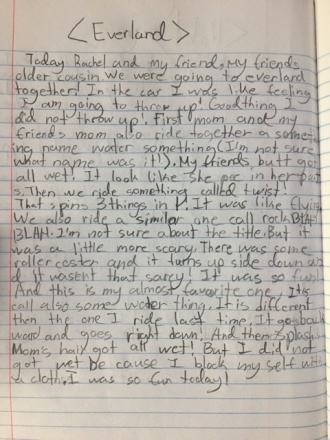 < Everland >
Today Rachel and my friend, My friends
older cousin. We were going to everland
together! In the car I was like feeling
I am going to throw up! Good thing I
did not throw up! First mom and my
friends mom also ride together a someth
ing name water something (I'm not sure
what name was it!). My friends butt got
all wet! It look like she pee in her pant
s. Then we ride something called twist!
That spins 3 things in 1. It was like flying
We also ride a similar one call rock BLAH
BLAH. I'm not sure about the title. But it
was a little more scary. There was some
roller coster and it turns up side down an
d it wasent that sarcy! It was so fun!
And this is my almost favorite one, It is
call also some water thing. It is different
then the one I ride last time. It go back
word and goes right down! And then splash
Mom's hair got all wet! But I did not
got wet be cause I block my self with
a cloth. I was so fun today!